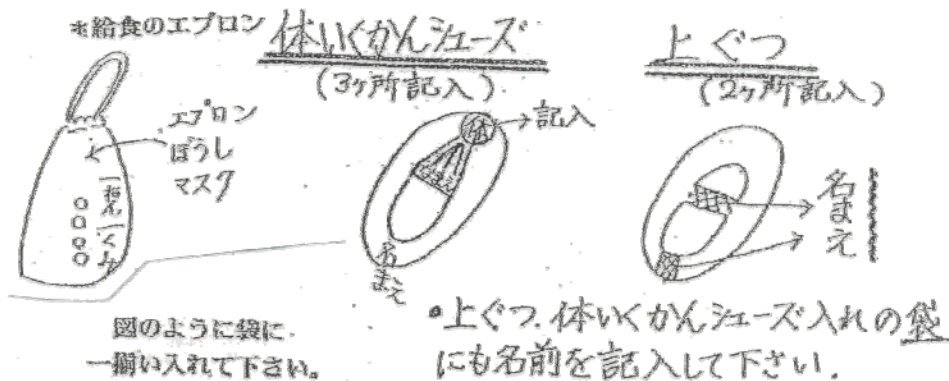 *給食のエプロン
エプロン
ぼうし
マスク
一ねん一くみ
○○○○
図のように袋に
一揃い入れて下さい。
体いくかんシューズ
(3ヶ所記入)
体
記入
名まえ
上ぐつ
(2ヶ所記入)
名まえ
•上ぐつ.体いくかんシューズ入れの袋
にも名前を記入して下さい.